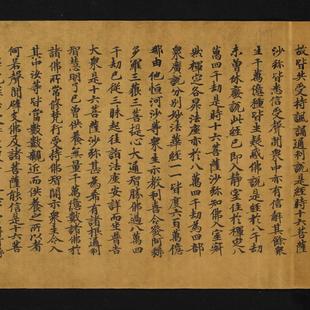 故皆共受持諷誦通利說是經時十六菩薩
沙彌皆悉信受聲聞眾中亦有信解其餘眾
生千萬億種皆生疑惑佛說是經於八千劫
未曾休廢說此經已即入靜室住於禪定八
萬四千劫是時十六菩薩沙彌知佛入室寂
然禪定各昇法座亦於八萬四千劫為四部
眾廣說分別妙法華經一一皆度六百萬億
那由他恒河沙等眾生示教利喜令發阿耨
多羅三藐三菩提心大通智勝佛過八萬四
千劫已從三昧起往詣法座安詳而坐普告
大眾是十六菩薩沙彌甚為希有諸根通利
智慧明了已曾供養無量千萬億數諸佛於
諸佛所常修梵行受持佛智開示眾生令入
其中汝等皆當數數親近而供養之所以者
何若聲聞辟支佛及諸菩薩能信是十六菩